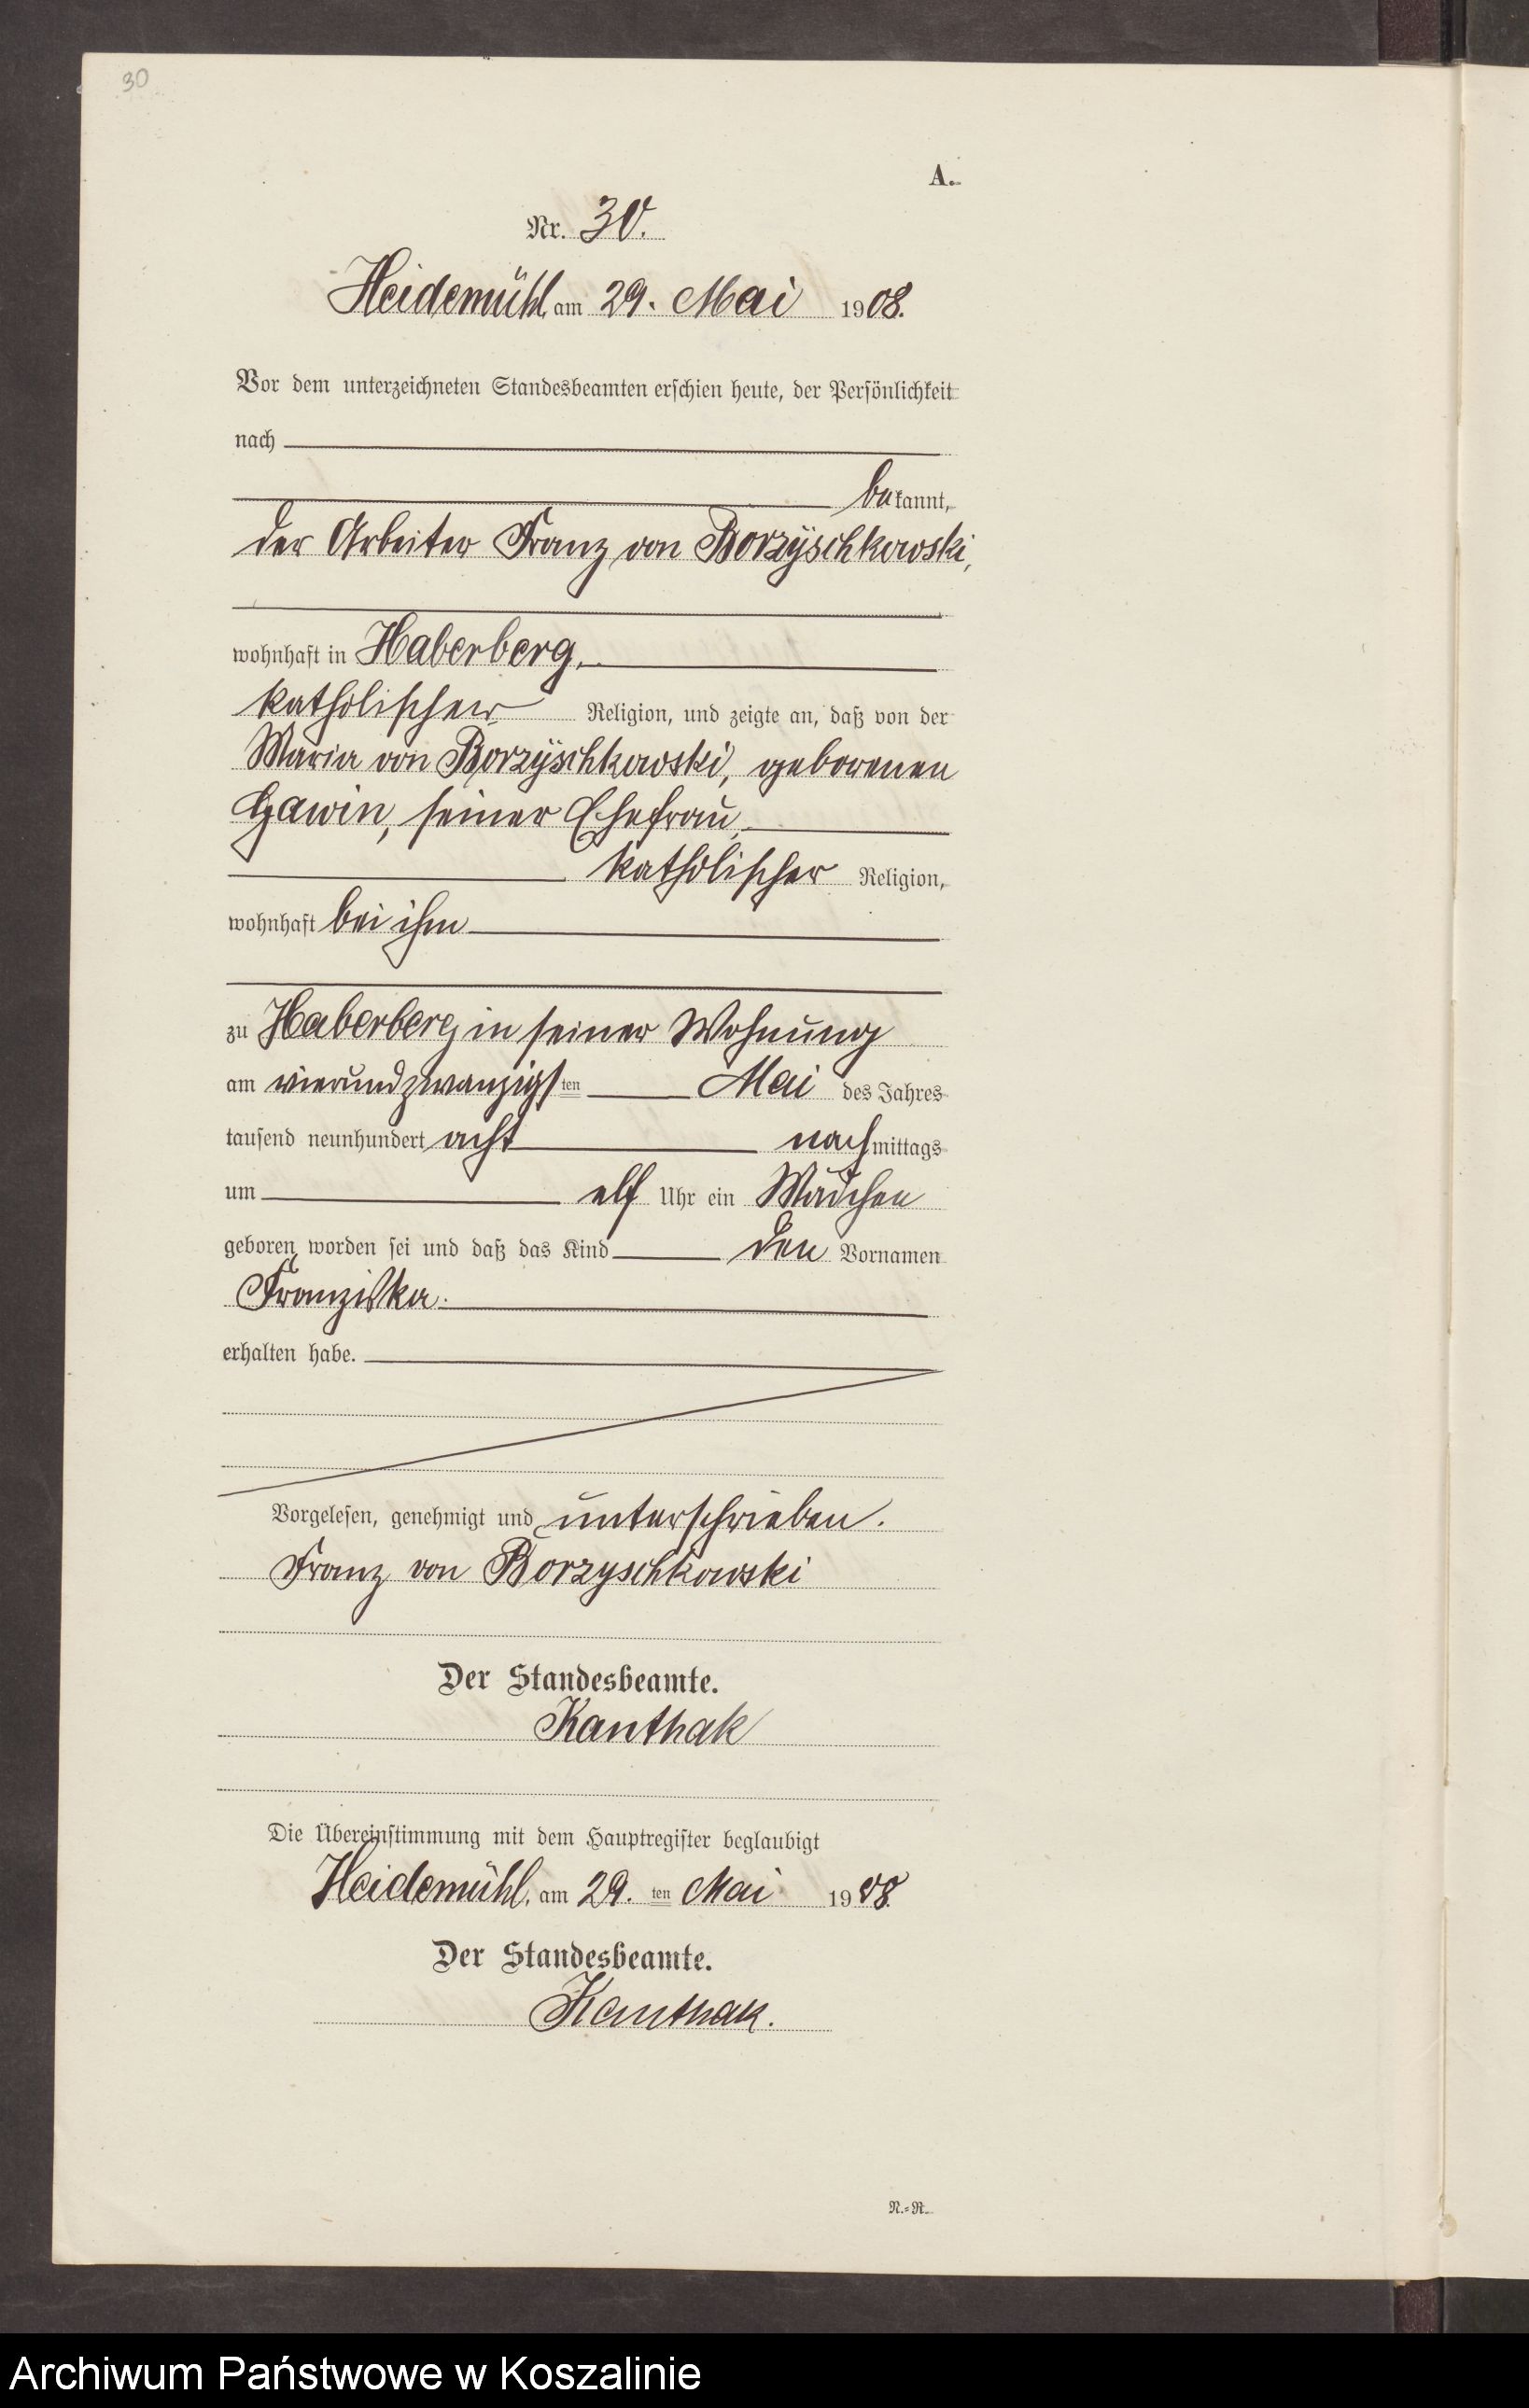 30
A.
Nr. 30.
Heidemühl, am 29. Mai 1908.
Vor dem unterzeichneten Standesbeamten erschien heute, der Persönlichkeit
nach
bekannt,
der Arbeiter Franz von Borzÿschkowski,
wohnhaft in Haberberg,
katholischer Religion, und zeigte an, daß von der
Maria von Borzÿschkowski, geborenen
Gawin, seiner Ehefrau,
katholischer Religion,
wohnhaft bei ihm
zu Haberberg in seiner Wohnung
am vierundzwanzigsten Mai des Jahres
tausend neunhundert acht nachmittags
um elf Uhr ein Mädchen
geboren worden sei und daß das Kind den Vornamen
Franziska.
erhalten habe.
Vorgelesen, genehmigt und unterschrieben.
Franz von Borzyschkowski
Der Standesbeamte.
Kanthak
Die Übereinstimmung mit dem Hauptregister beglaubigt
Heidemühl, am 29. ten Mai 1908.
Der Standesbeamte.
Kanthak.
N.=R.
Archiwum Państwowe w Koszalinie